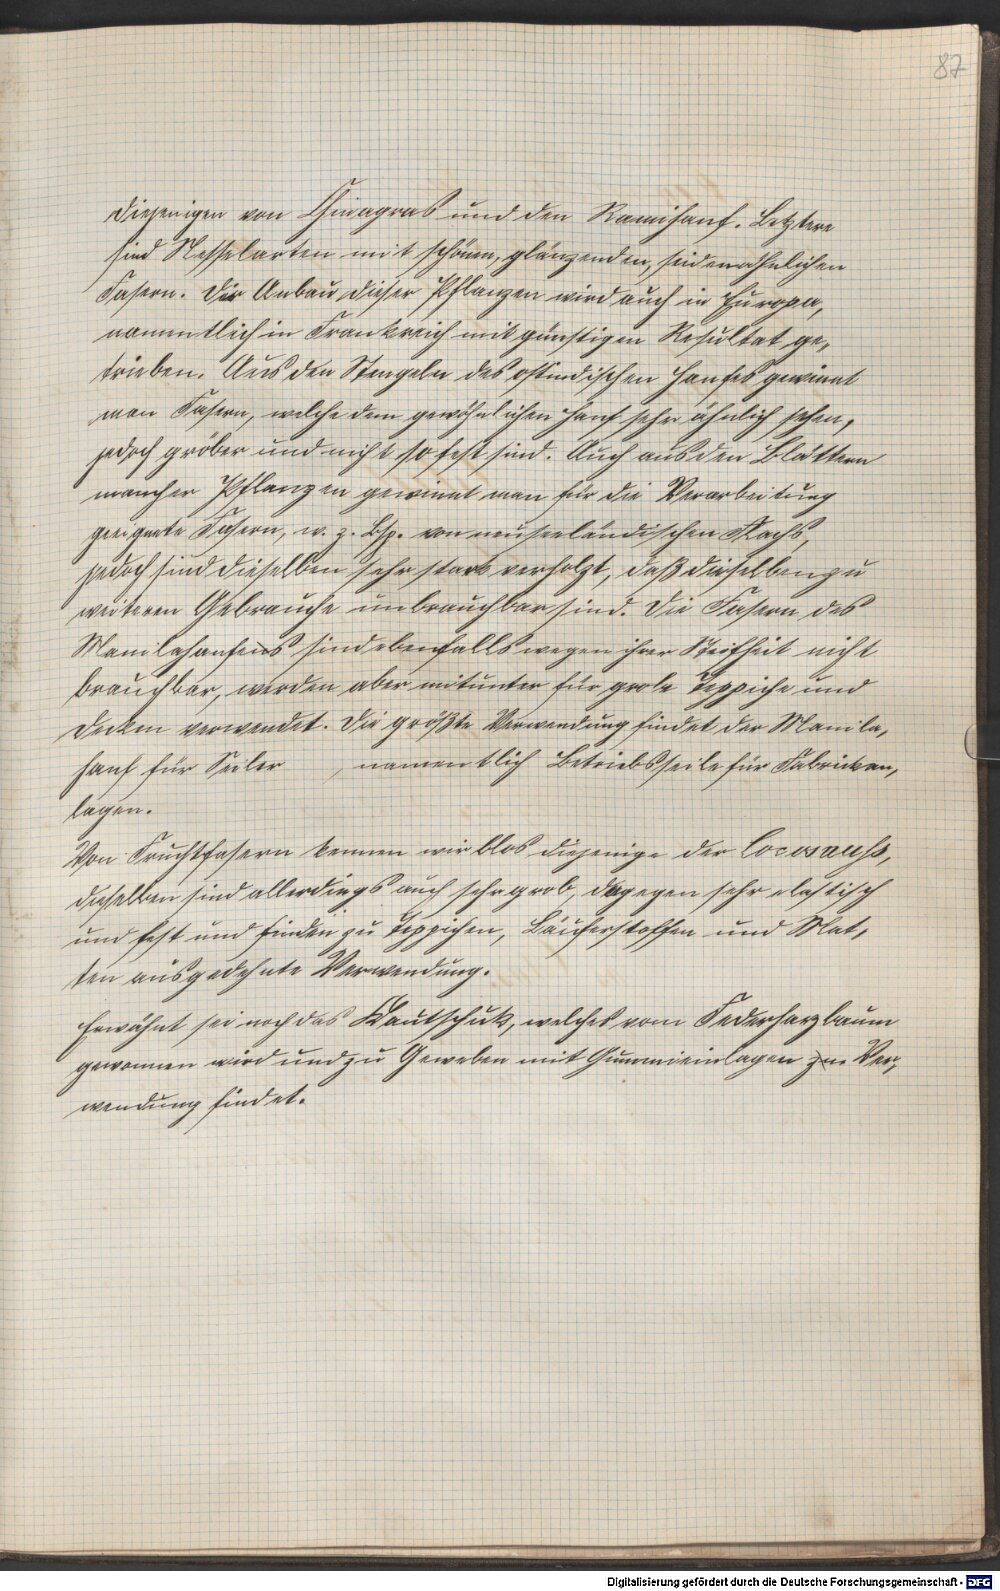 87
diejenigen von Chinagras und den Ramihanf. Letztere
sind Nesselarten mit schönen, glänzenden, seidenähnlichen
Fasern. Der Anbau dieser Pflanzen wird auch in Europa,
namentlich in Frankreich mit günstigen Resultat ge-
trieben. Aus den Stengeln des ostindischen Hanfes gewinnt
man Fasern, welche dem gewöhnlichen Hanf sehr ähnlich sehen,
jedoch gröber und nicht so fest sind. Auch aus den Blättern
mancher Pflanzen gewinnt man für die Verarbeitung
geeignete Fasern, w. z. Bsp. von neuseeländischen Flachs,
jedoch sind dieselben sehr stark verholzt, daß dieselben zu
weiteren Gebrauche unbrauchbar sind. Die Fasern des
Manilahanfes sind ebenfalls wegen ihrer Steifheit nicht
brauchbar, werden aber mitunter für grobe Teppiche und
Decken verwendet. Die größte Verwendung findet der Manila-
hanf für Seiler , namentlich Betriebsseile für Fabrikan-
lagen.
Von Fruchtfasern kennen wir blos diejenige der Cocosnuß,
dieselben sind allerdings auch sehr grob, dagegen sehr elastisch
und fest und finden zu Teppichen, Läuferstoffen und Mat-
ten ausgedehnte Verwendung.
Erwähnt sei noch das Kautschuk, welches vom Federharzbaum
gewonnen wird und zu Geweben mit Gummieinlagen Ver-
wendung findet.
Digitalisierung gefördert durch die Deutsche Forschungsgemeinschaft - DFG